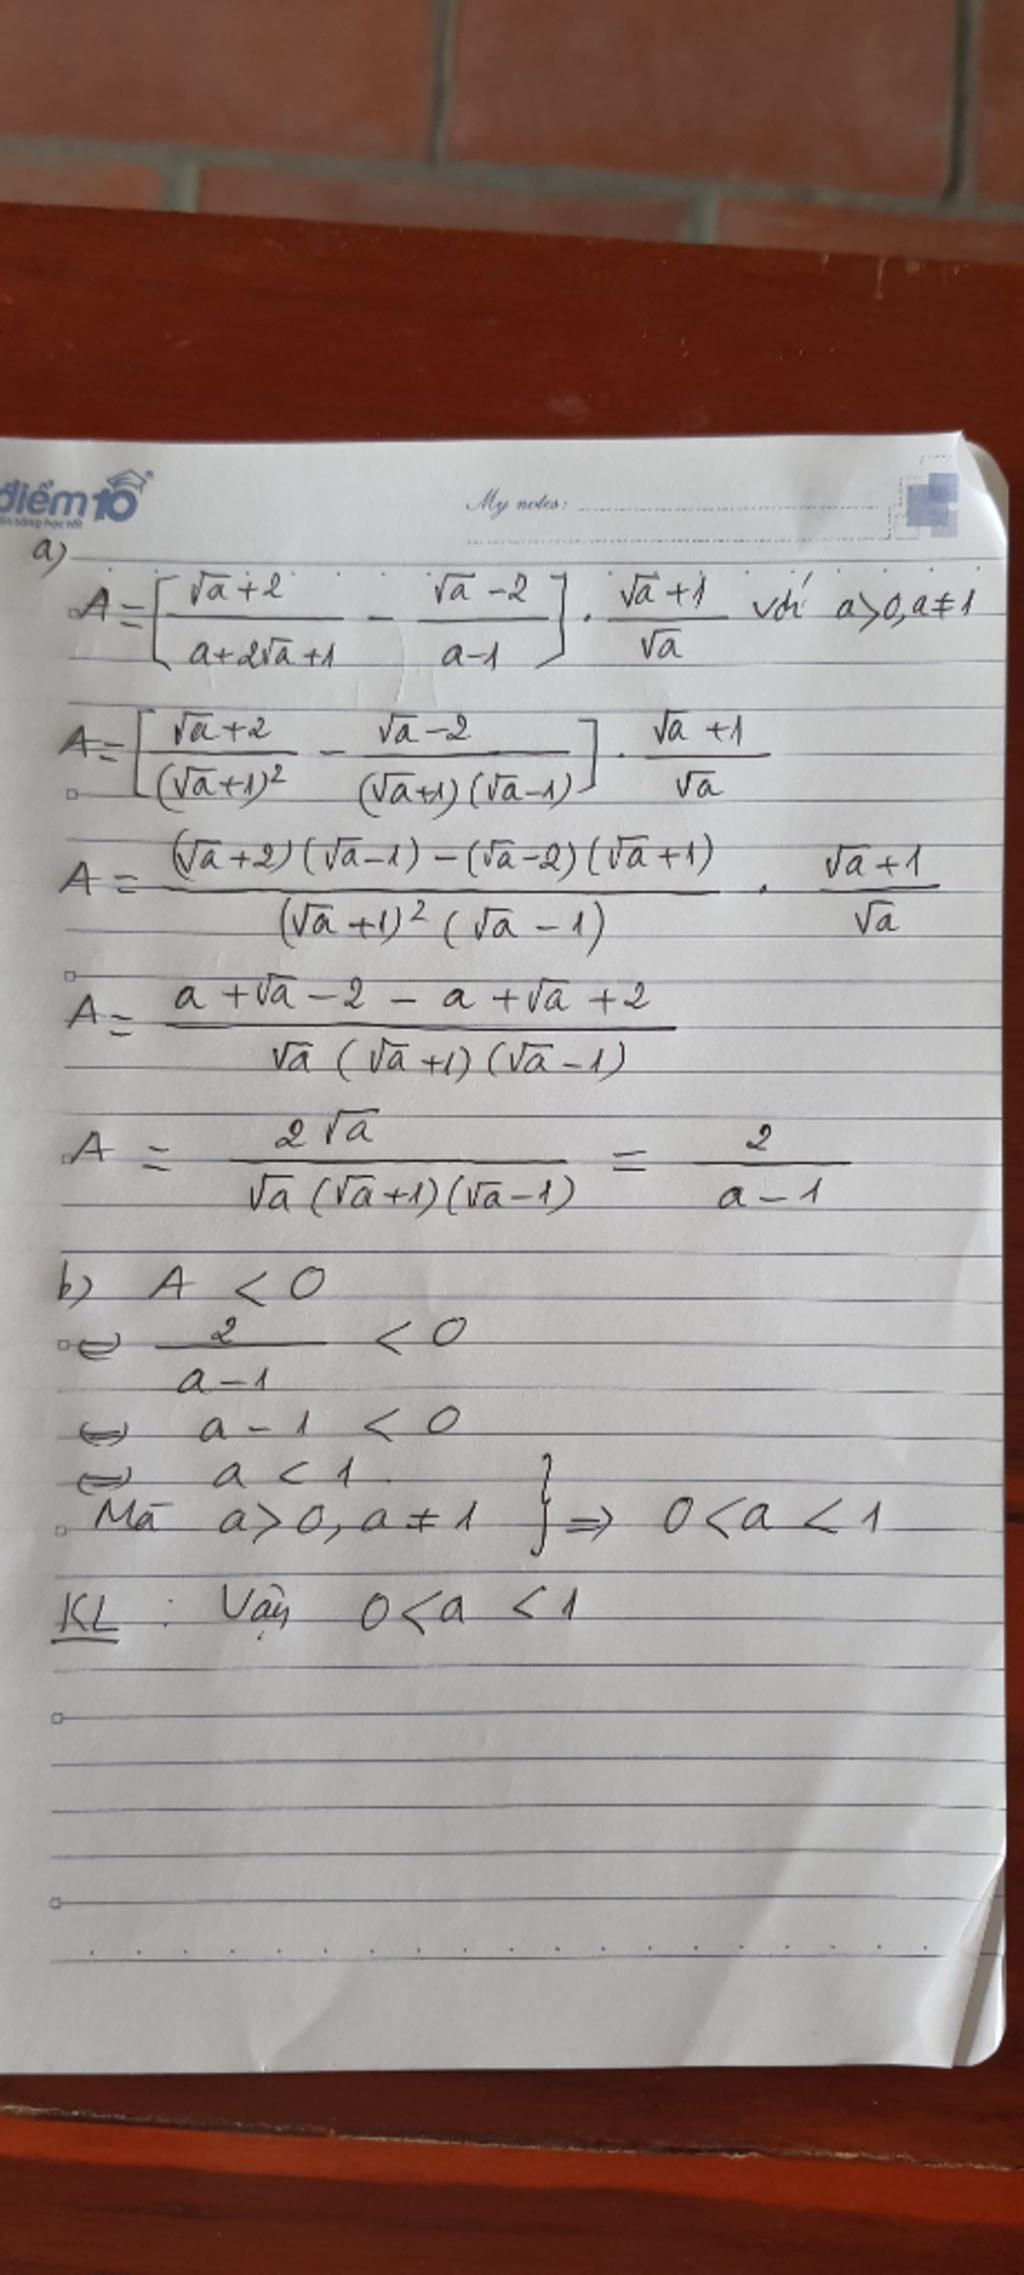 điểm10
My notes:
a)
A = [ (√a+2)/(a+2√a+1) - (√a-2)/(a-1) ] . (√a+1)/√a với a>0, a≠1
A = [ (√a+2)/(√a+1)² - (√a-2)/((√a+1)(√a-1)) ] . (√a+1)/√a
A = ((√a+2)(√a-1) - (√a-2)(√a+1))/((√a+1)²(√a-1)) . (√a+1)/√a
A = (a+√a-2-a+√a+2)/(√a(√a+1)(√a-1))
A = 2√a/(√a(√a+1)(√a-1)) = 2/(a-1)
b) A < 0
⇔ 2/(a-1) < 0
⇔ a-1 < 0
⇔ a < 1
Mà a>0, a≠1 } ⇒ 0<a<1
KL : Vậy 0<a<1